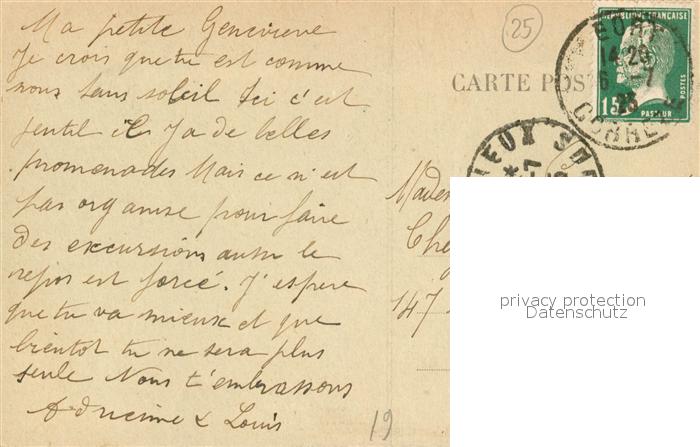 Ma petite Genevieve
Je crois que tu est comme
nous sans soleil Ici c'est
gentil il y a de belles
promenades Mais ce n'est
pas organise pour faire
des excursions aussi le
repos est forcé. J'espere
que tu va mieux et que
bientot tu ne sera plus
seule Nous t'embrassons
& Louis
19
25
CARTE POST
REPUBLIQUE FRANÇAISE
15
POSTES
PASTEUR
14 29
6 -7
23
CORRE
147
privacy protection
Datenschutz